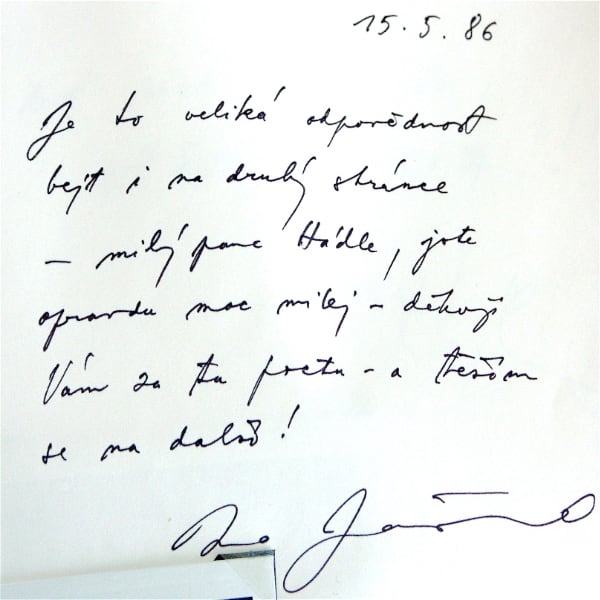 15. 5. 86
Je to veliká odpovědnost
bejt i na druhý stránce
– milý pane Hádle, jste
opravdu moc milej – děkuji
Vám za tu poctu – a těším
se na další!